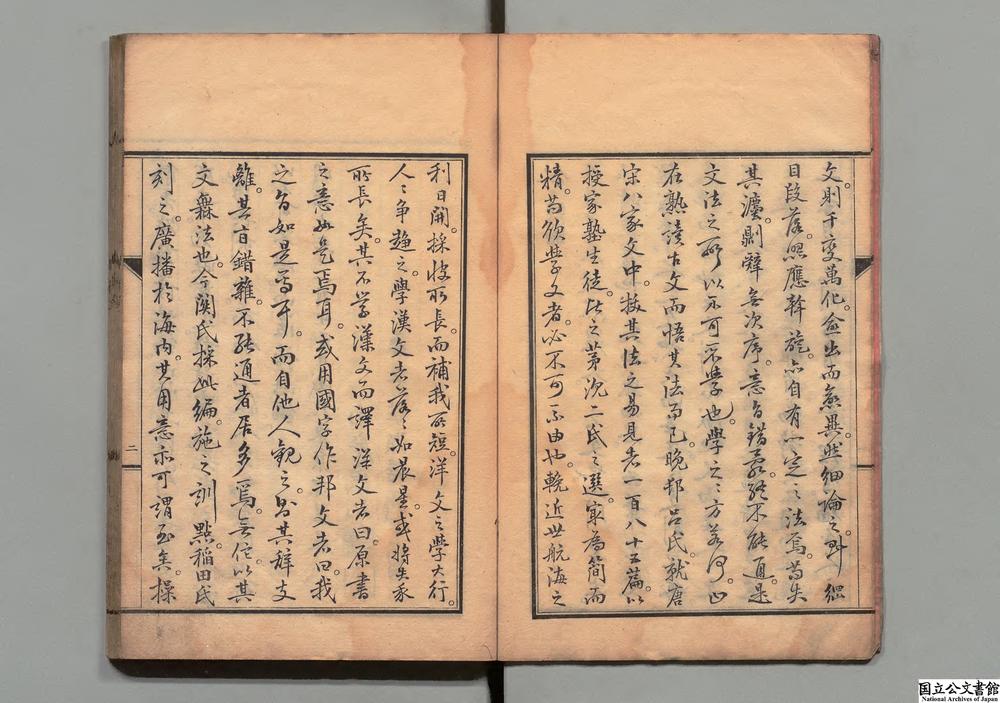 文。則千變萬化。愈出而愈異。然細論之。則綱
目段落。照應斡旋。亦自有一定之法焉。苟失
其瀍。則辭無次序。意旨錯亂。終不能通。是
文法之所以不可不學也。學之之方若何。曰
在熟讀古文而悟其法而已。晚邨呂氏。就唐
宋八家文中。抜其法之易見者一百八十五篇。以
授家塾生徒。比之茅沈二氏之選。寂為簡而
精。苟欲學文者。必不可不由也。輓近世航海之
利日開。採彼所長。而補我所短。洋文之學大行。
人々争趨之。學漢文者落々如晨星。或將失家
所長矣。其不学漢文而譯洋文者曰。原書
之意如是焉耳。或用國字作邦文者曰。我
之旨如是焉耳。而自他人觀之。則其辭支
離。其旨錯雜。不能通者居多焉。無佗。以其
文無法也。今関氏採此編。施之訓點。稲田氏
刻之。廣播於海内。其用意亦可謂至矣。操
二
国立公文書館
National Archives of Japan